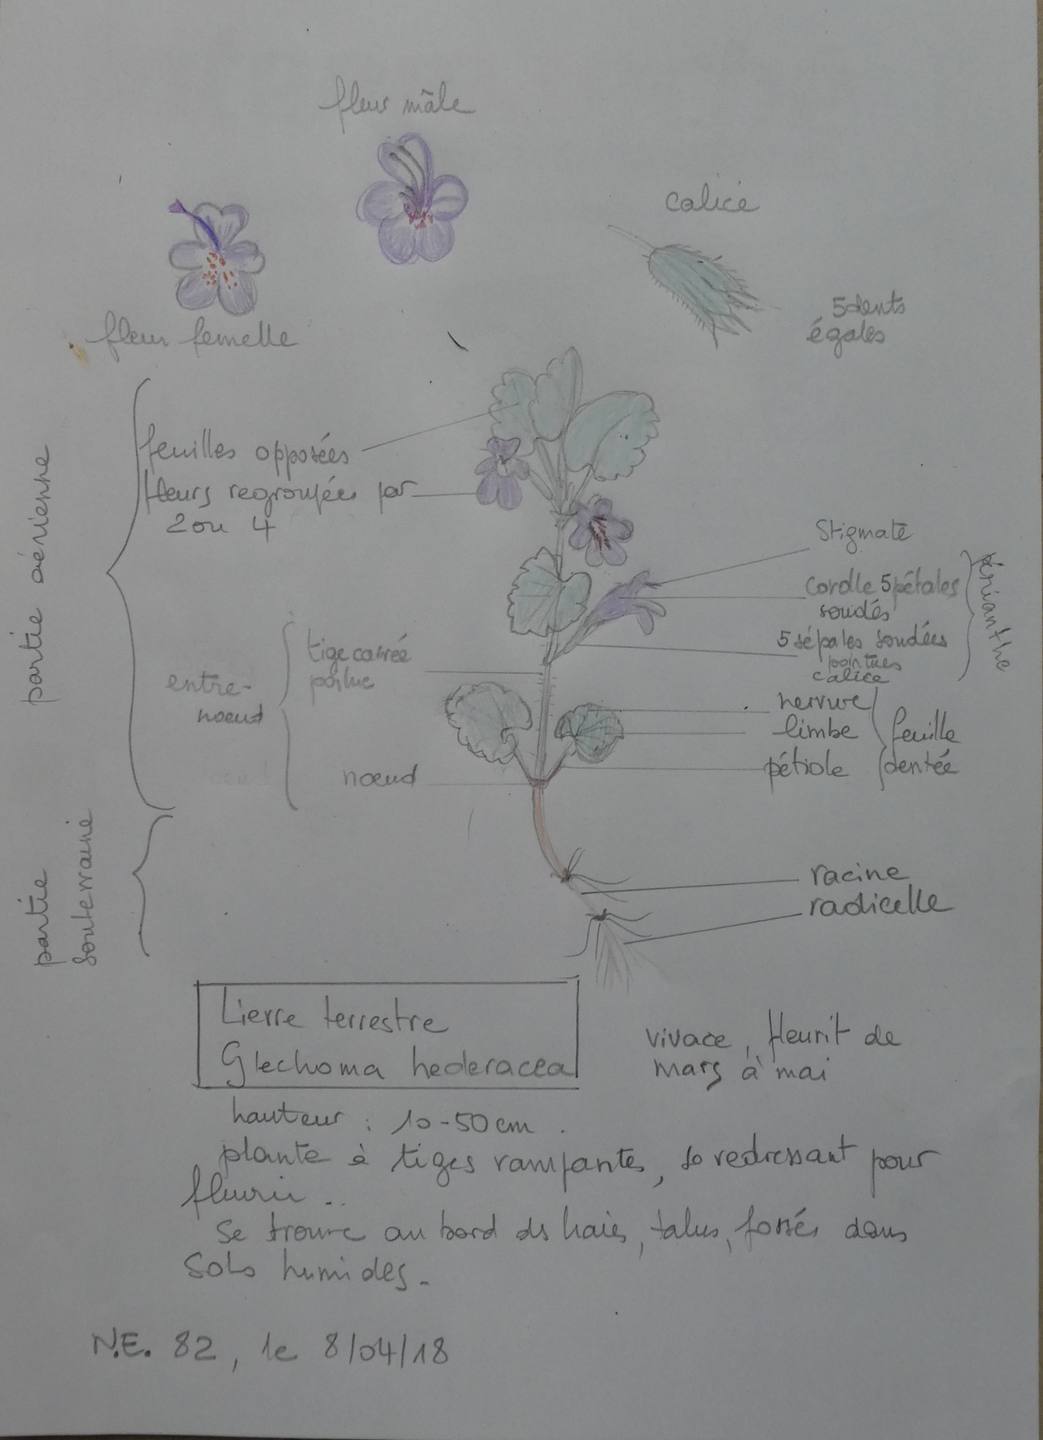 fleur mâle
calice
5 dents
égales
fleur femelle
partie aérienne
feuilles opposées
fleurs regroupées par
2 ou 4
Stigmate
corolle 5 pétales
soudés
5 sépales soudées
pointues
calice
périanthe
entre-
noeud
tige carrée
poilue
noeud
nervure
limbe
pétiole
feuille
dentée
partie
souterraine
racine
radicelle
Lierre terrestre
Glechoma hederacea
vivace, fleurit de
mars à mai
hauteur : 10-50 cm.
plante à tiges rampantes, se redressant pour
fleurir..
Se trouve au bord ds haies, talus, fossés dans
sols humides.
N.E. 82, le 8/04/18